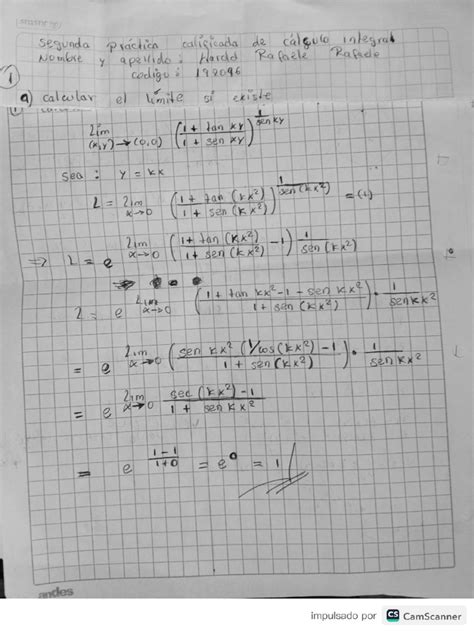 segunda práctica calificada de cálculo integral
Nombre y apellido: Harold Rafaele Rafaele
codigo: 198096
1
a) calcular el límite si existe
Lim (x,y)→(0,0) ((1 + tan xy)/(1 + sen xy))^(1/sen xy)
sea: y = kx
L = Lim x→0 ((1 + tan (kx²))/(1 + sen (kx²)))^(1/sen(kx²)) = (1)
⇒ L = e^(Lim x→0 ((1 + tan (kx²))/(1 + sen (kx²)) - 1) 1/sen (kx²))
L = e^(Lim x→0 ((1 + tan kx² - 1 - sen kx²)/(1 + sen (kx²))) · 1/sen kx²)
= e^(Lim x→0 (sen kx² (1/cos(kx²) - 1)/(1 + sen (kx²))) · 1/sen kx²)
= e^(Lim x→0 (sec (kx²) - 1)/(1 + sen kx²))
= e^((1-1)/(1+0)) = e⁰ = 1
andes
impulsado por CS CamScanner